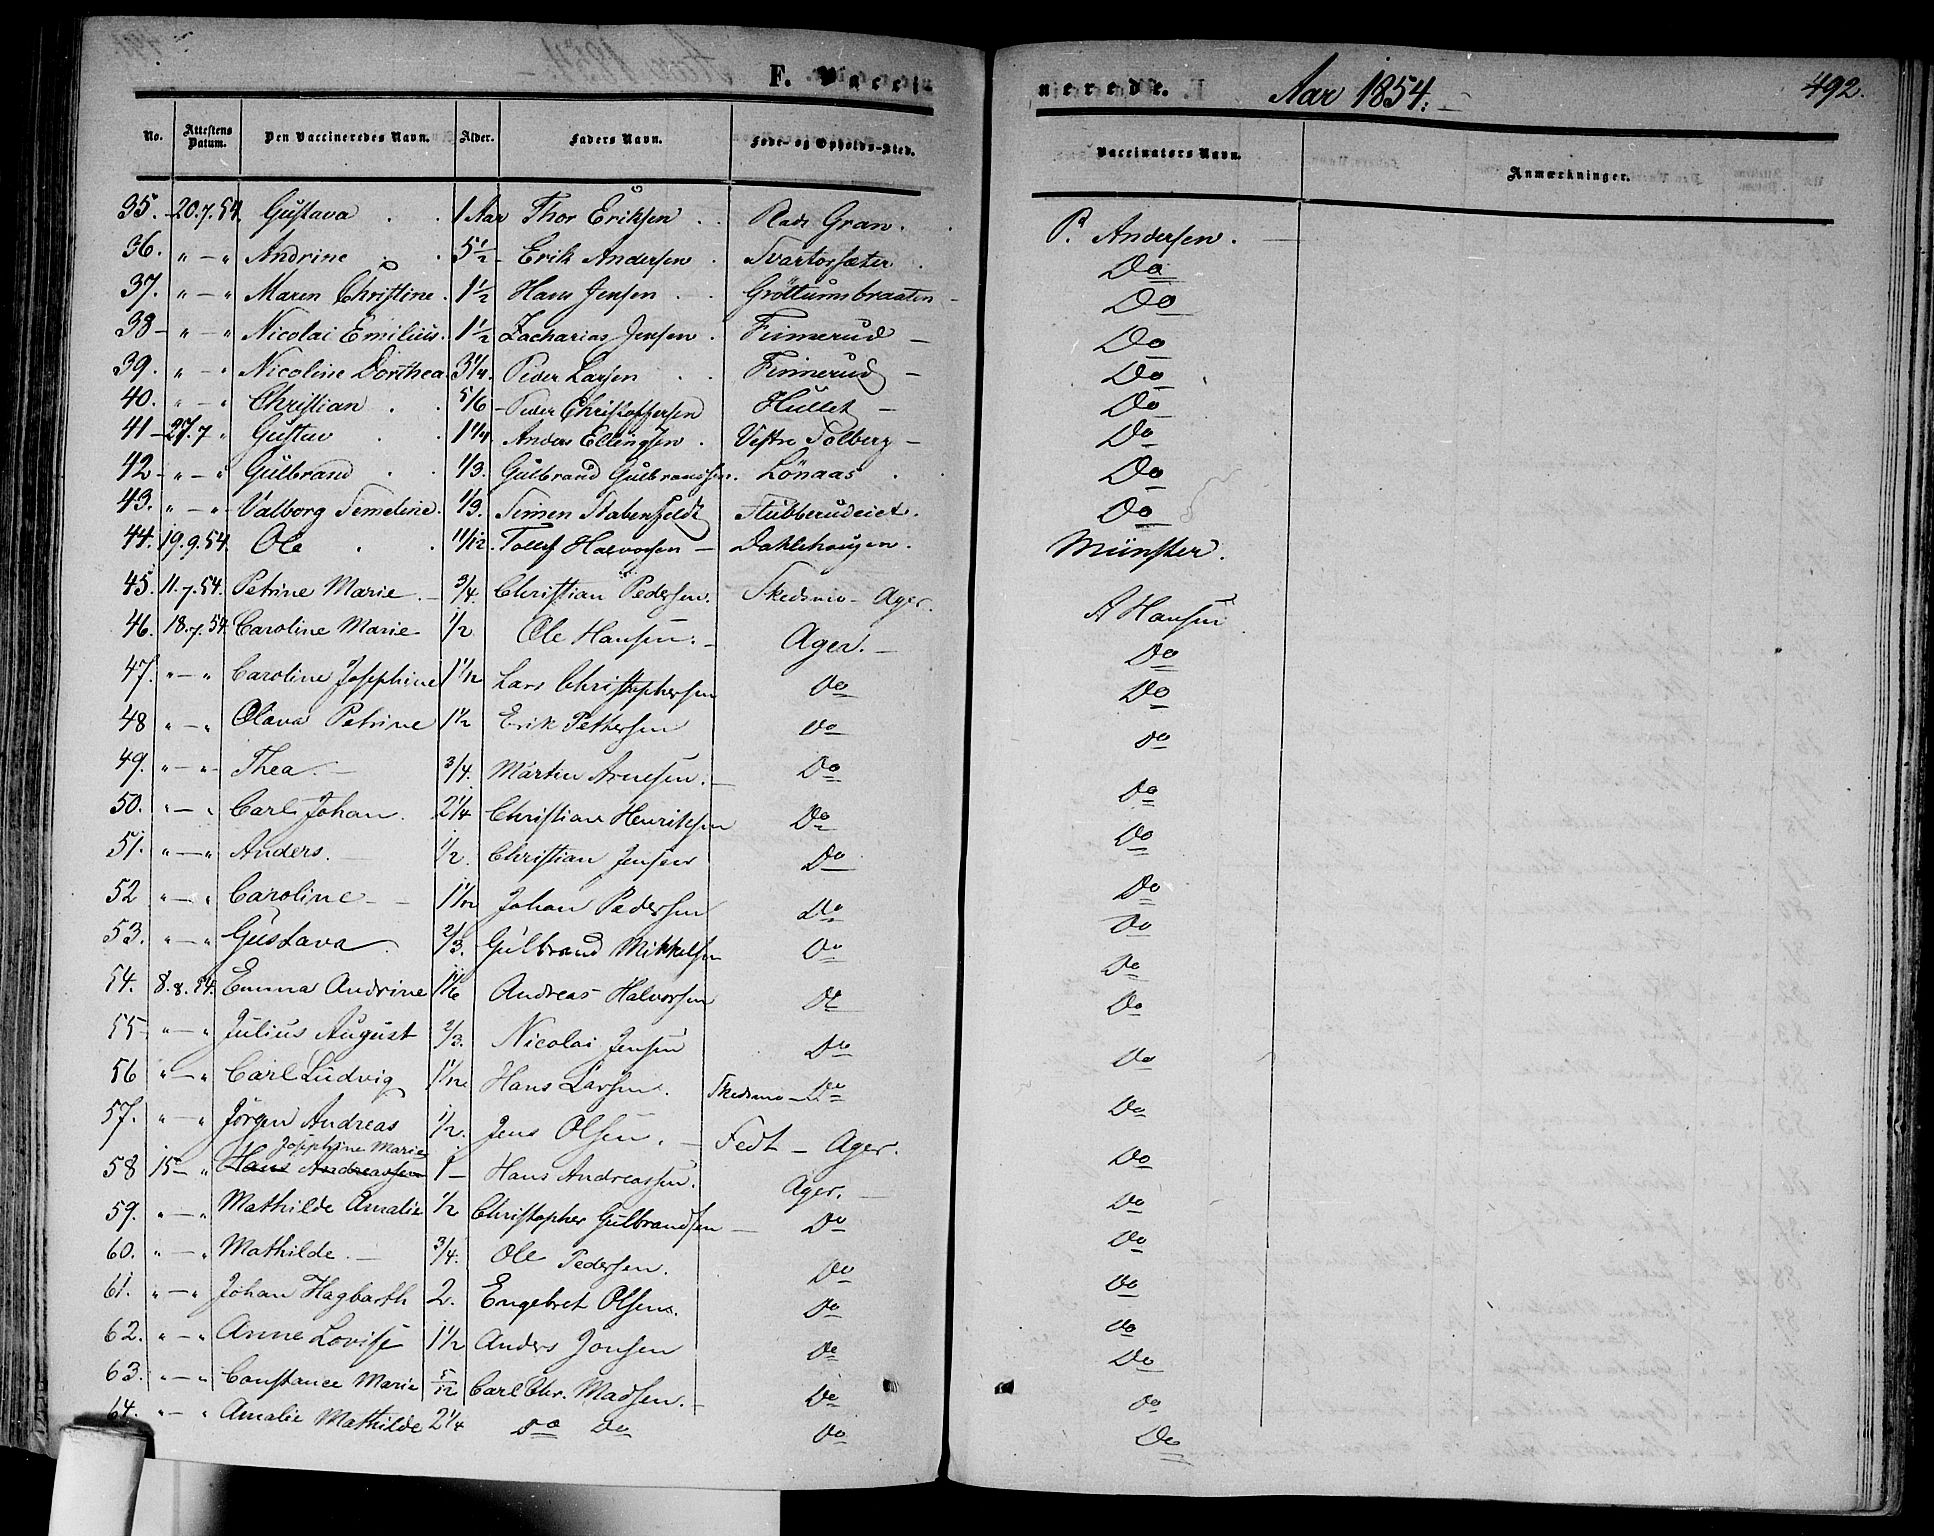 F. Vaccinerede. Aar 1854. 492.
No. Attestens Datum. Den Vaccineredes Navn. Alder. Faders Navn. Føde- og Opholds-Sted. Vaccinators Navn. Anmærkninger.
35. 20.7.54. Gustava . . 1 Aar Thor Eriksen . . Gran. P. Andersen.
36. " — " Andrine . 5 1/2 Erik Andersen . Svartorsæter . Do
37. " — " Maren Christine. 1 1/2 Hans Jensen . . Gröttumsbraaten - Do
38 - " — " Nicolai Emilius. 1 1/2 Zacharias Jensen . Finnerud - Do
39. " — " Nicoline Dorthea. 3 1/4. Peder Larsen . . Finnerud - Do
40. " — " Christian . . 5/6 - Peder Christoffersen Hullet - Do
41 - 27.7 " Gustav . . 1 1/4 Anders Ellingsen . Vestre Solberg - Do
42 - " — " Gulbrand . . 1/3. Gulbrand Gulbrandsen. Lönaas . Do
43. " — " Valborg Semeline. 1/3. Simen Stabenfeldt Stubberudeiet. Do
44. 19.9.54. Ole . . 11/12. Tollef Halvorsen - Dahlehaugen. Münster.
45. 11.7.54. Petrine Marie . 3/4. Christian Pedersen. Skedsmo - Ager. A Hansen
46. 18.7.54. Caroline Marie 1/2 Ole Hansen. - Ager. - Do
47. " — " Caroline Josephine 1 1/12 Lars Christophersen Do Do
48 " — " Olava Petrine 1 1/2 Erik Pettersen Do Do
49. " — " Thea. - 3/4. Martin Arnesen. - Do Do
50. " — " Carl Johan. 2 1/4 Christian Henriksen Do Do
51. " — " Anders. - 1/2. Christian Jensen Do Do
52 " — " Caroline - - 1 1/12 Johan Pedersen Do Do
53. " — " Gustava . 2/3. Gulbrand Mikkelsen Do Do
54. 8.8.54. Emma Andrine 1 1/6 Andreas Halvorsen Do Do
55 - " — " Julius August 2/3. Nicolai Jensen Do Do
56 " — " Carl Ludvig 1 1/12 Hans Larsen. Skedsmo - Do Do
57. " — " Jörgen Andreas 1/2. Jens Olsen. - Fedt - Ager. Do
Josephine Marie
58 15 - " Hans Andreassen 1 - Hans Andreassen. Ager. - Do
59. " — " Mathilde Amalie 1/2 Christopher Gulbrandsen - Do Do
60. " — " Mathilde. - 3/4. Ole Pedersen. Do Do
61. " — " Johan Hagbarth 2. Engebret Olsen. Do Do
62. " — " Anne Lovise 1 1/2 Anders Jonsen Do Do
63. " — " Constance Marie 5/12 Carl Chr. Madsen. - Do Do
64. " — " Amalie Mathilde 2 1/4 Do Do Do Do